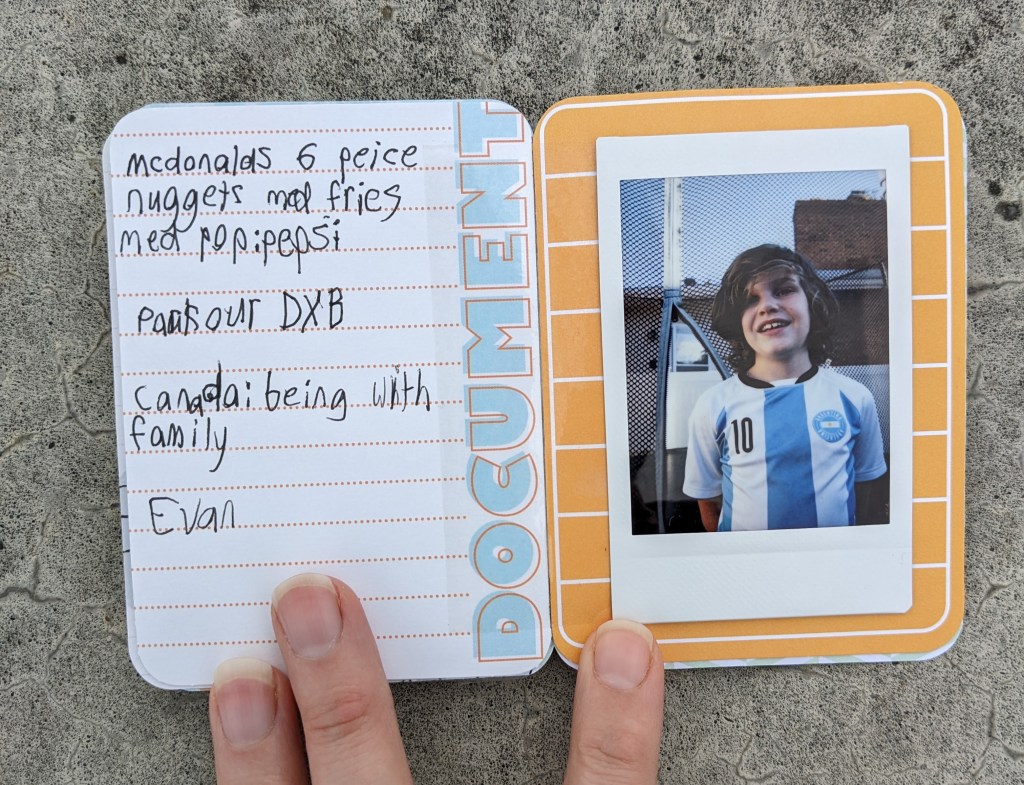 mcdonalds 6 peice
nuggets med fries
med pop:pepsi
parkour DXB
canada: being with
family
Evan
DOCUMENT
10